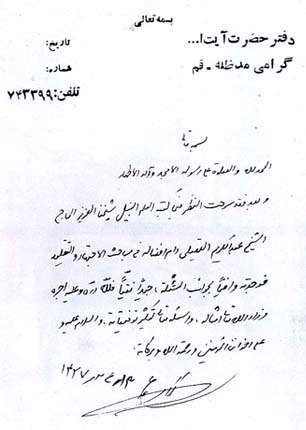 بسمه تعالی
دفتر حضرت آیت‌ا...
گرامی مدظله ـ قم
تاریخ:
شماره:
تلفن: ۷۴۳۳۹۹
بسمه تعالی
الحمدلله والصلاة علی رسوله الامجد وآله الاطهار
وبعد فقد سرحت النظر فی کتبه العلم النبیل شیخنا العزیز الحاج
الشیخ عبدالکریم العقیلی دام افضاله فی مباحث الاجتهاد والتقلید
فوجدته وافیاً بجوانب المسئلة نقیاً فلله درّه وعلیه اجره
وزاد الله امثاله واسئله تعالی تکثیر توفیقاته والسلام علیه و
علی اخواننا المؤمنین ورحمة الله وبرکاته
۱۴۲۷